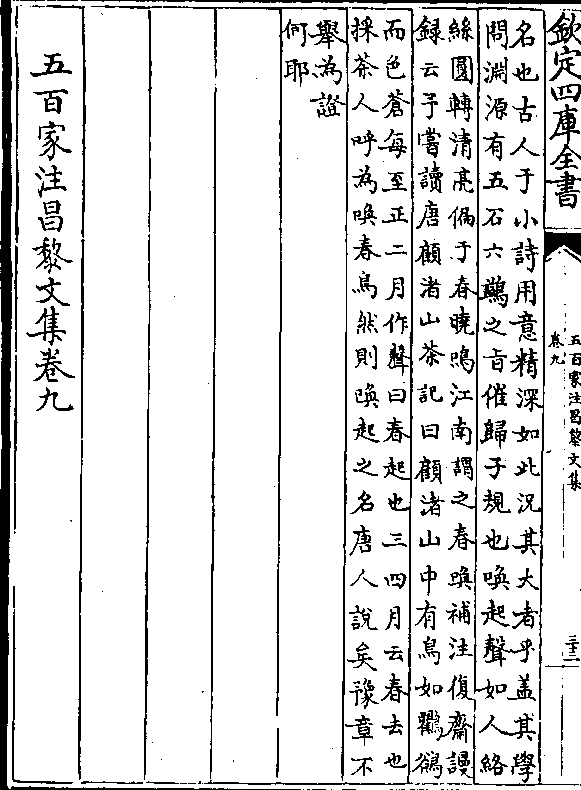 欽定四庫全書
五百家注昌黎文集
卷九
三十二
名也古人于小詩用意精深如此況其大者乎蓋其學
問淵源有五石六鷁之㫖催歸子規也喚起聲如人絡
絲圓轉清亮偏于春曉鳴江南謂之春喚補注復齋謾
録云予嘗讀唐顧渚山茶記曰顧渚山中有鳥如鸜鵒
而色蒼每至正二月作聲曰春起也三四月云春去也
採茶人呼為喚春鳥然則喚起之名唐人說矣豫章不
舉為證
何耶
五百家注昌黎文集卷九